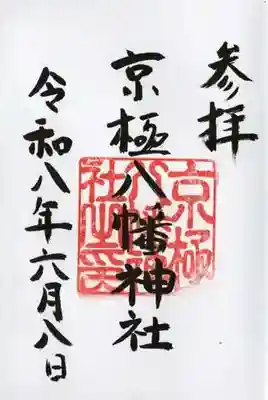 参拝
京極八幡神社
京極八幡神社之印
令和八年六月八日